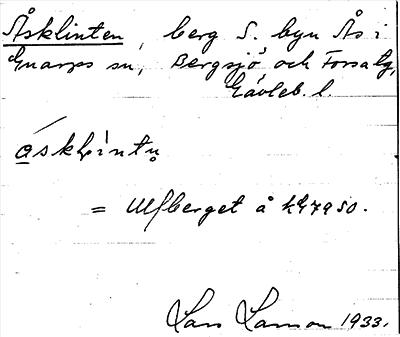 Åsklinten, berg S. byn Ås i
Gnarps sn, Bergsjö och Forsa tg,
Gävleb. l.
åskḷintn̥
= Ulfberget å
Lars Larsson 1933.